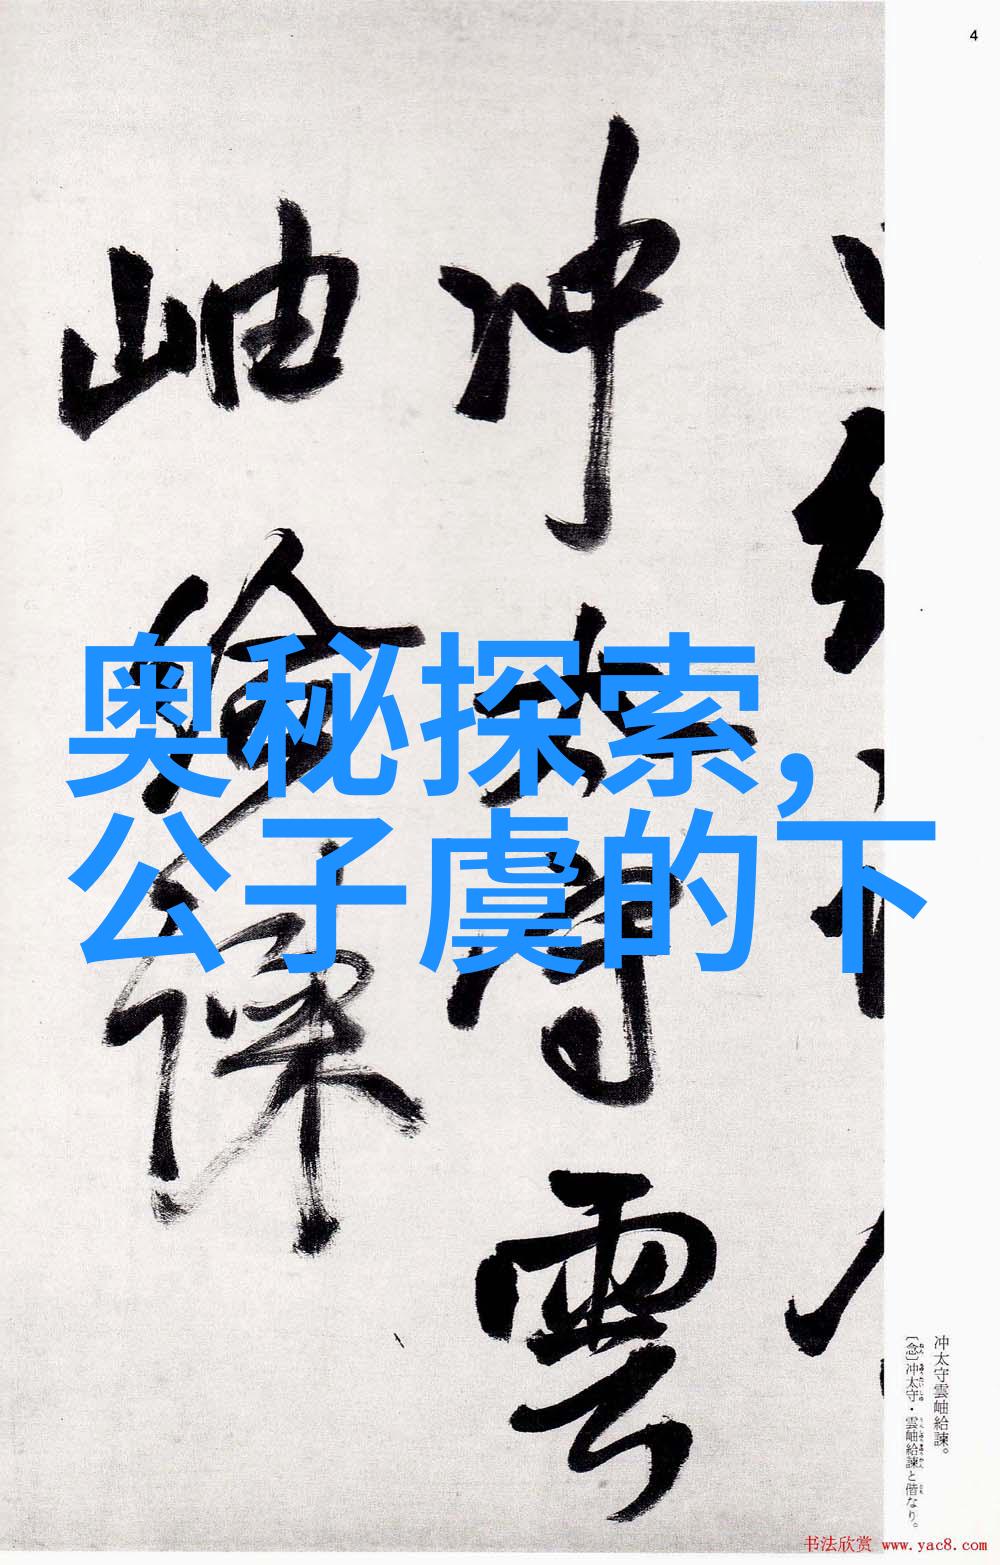 4
冲太守雲
岫給諫
奥秘探索,
公子虞的下
冲太守雲岫給諫。
〔念〕冲太守・雲岫給諫と偕なり。
书法欣赏 www.yac8.com